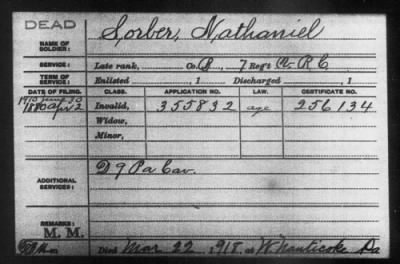 DEAD
NAME OF SOLDIER: Sorber, Nathaniel
SERVICE: Late rank, Co. 7 Reg't
TERM OF SERVICE: Enlisted , 1 Discharged , 1
DATE OF FILING. CLASS. APPLICATION NO. LAW. CERTIFICATE NO.
1910 June 30
1880 Apr 2 Invalid, 355832 age 256134
Widow,
Minor,
ADDITIONAL SERVICES: D 9 Pa Cav.
REMARKS:
M. M.
Died Mar 22, 1918, at W Nanticoke Pa